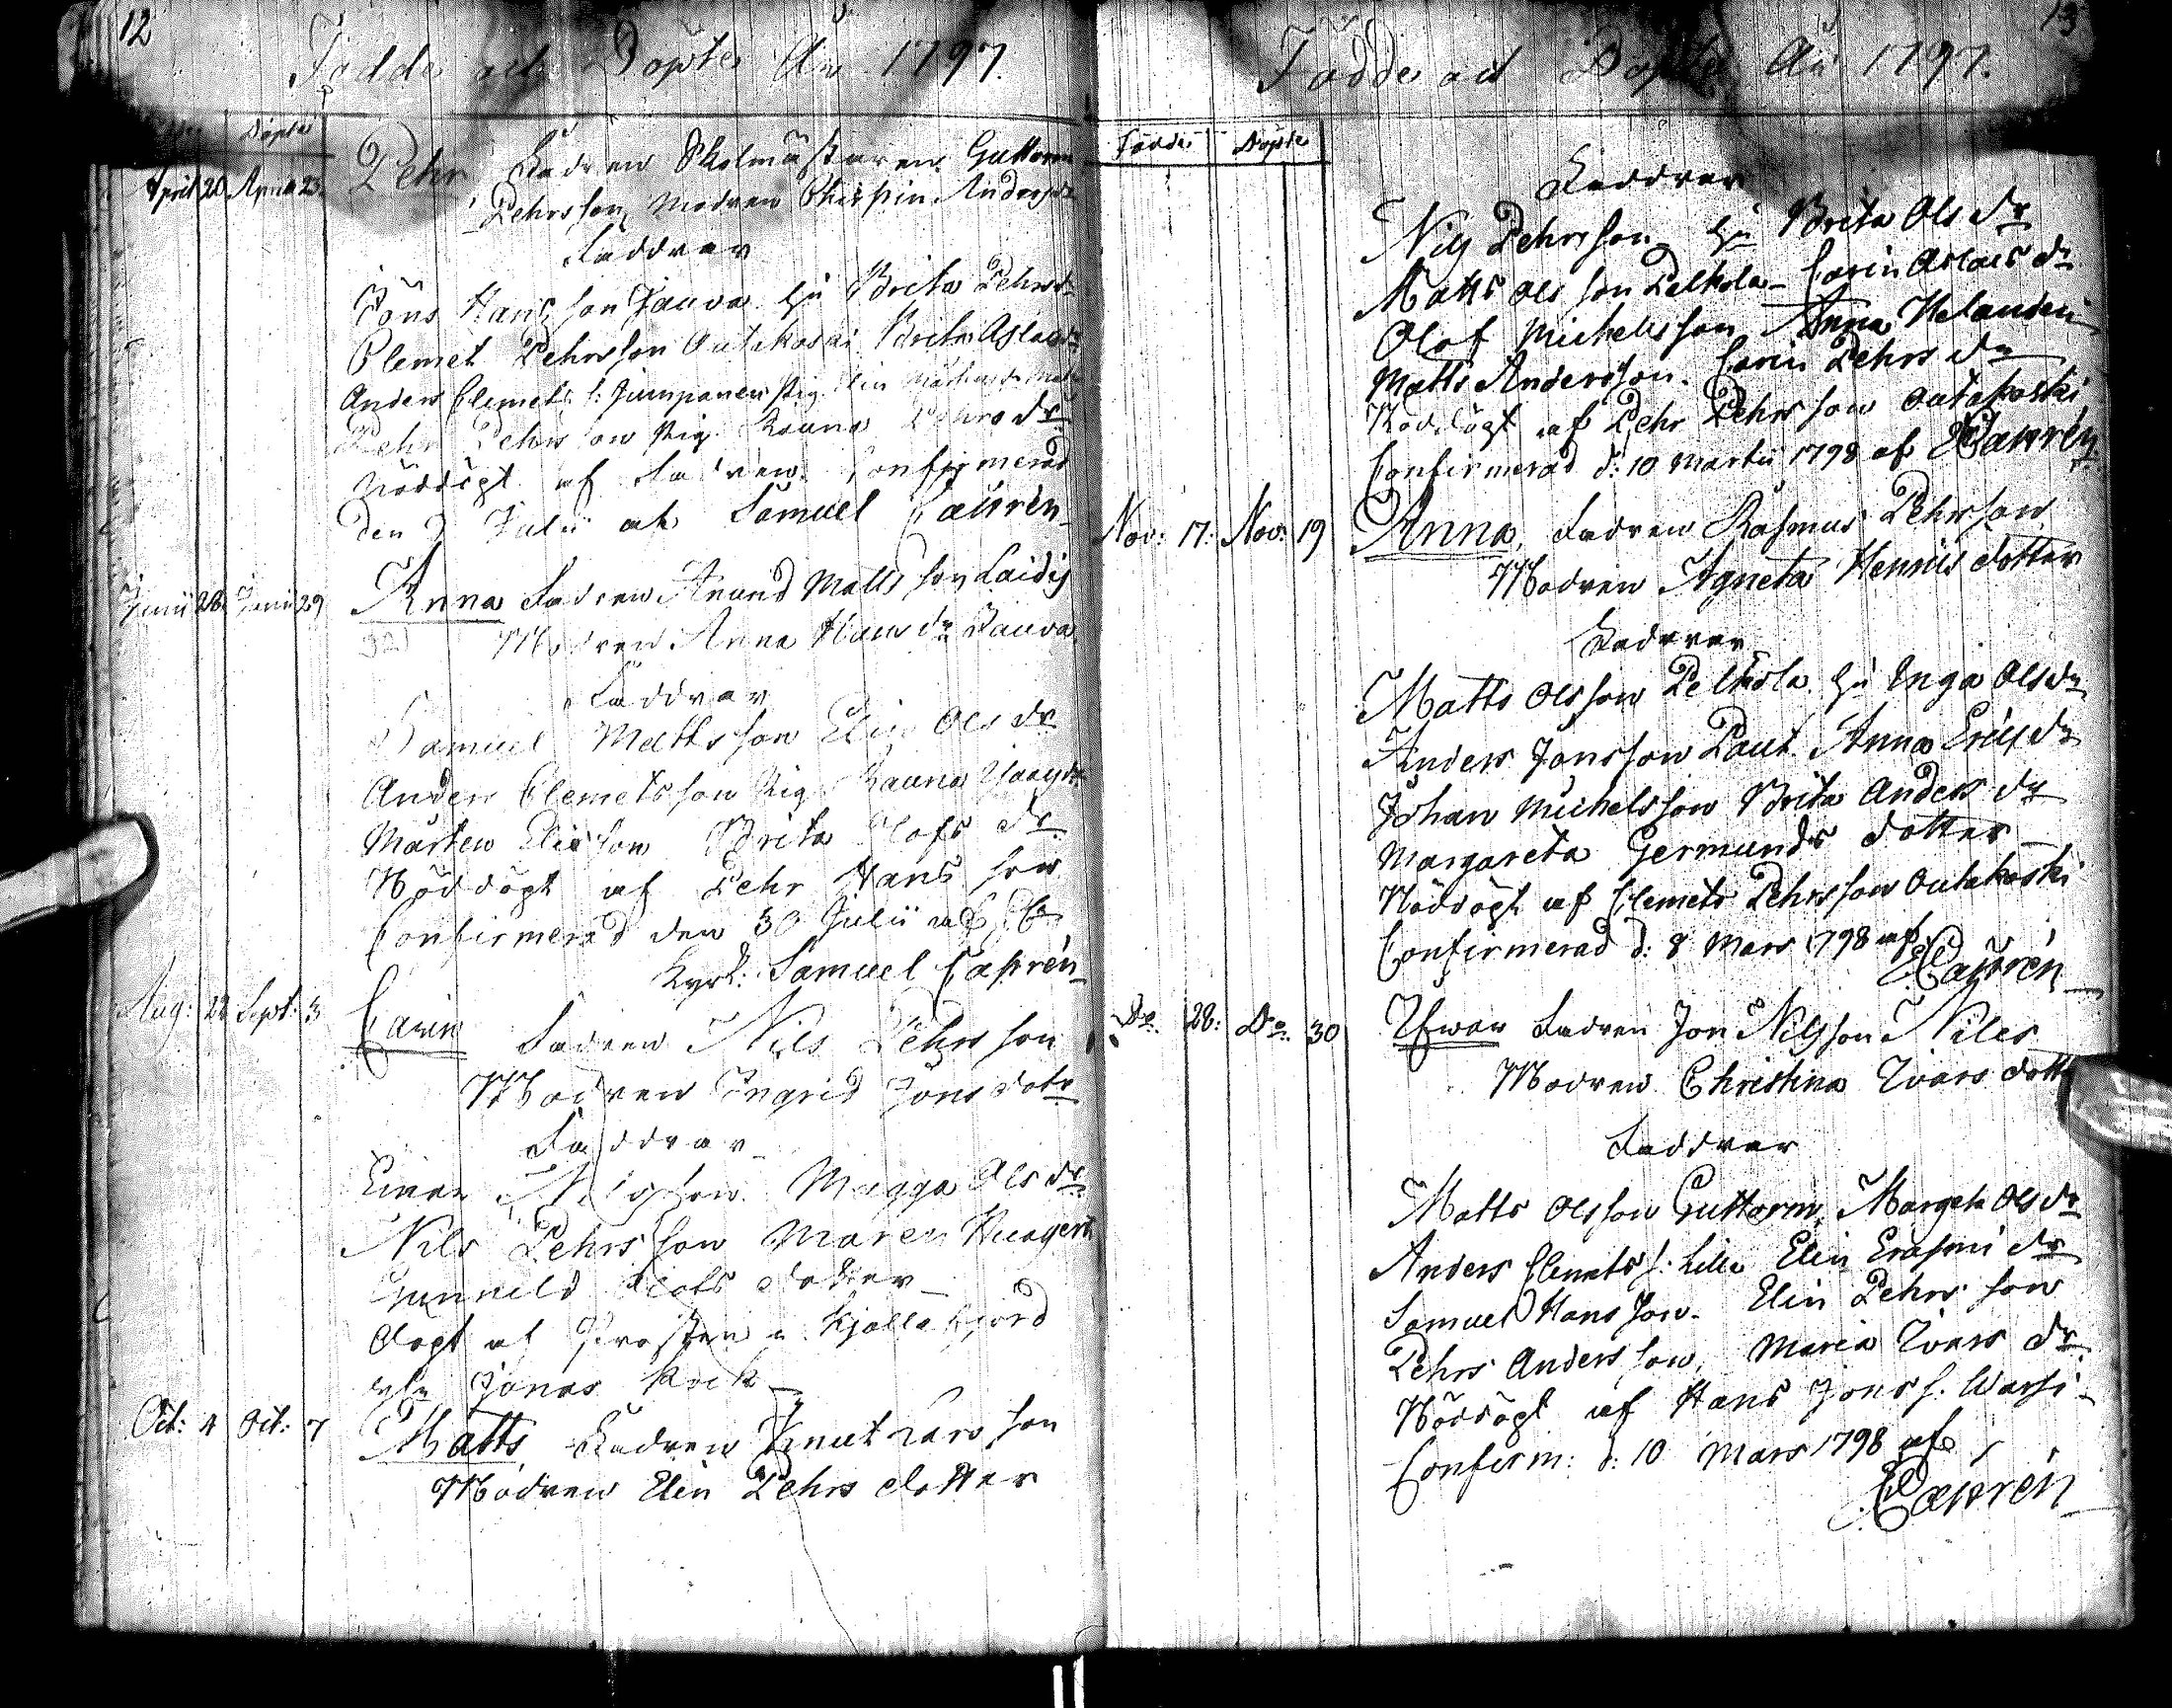 12
Födde och Döpte Åw 1797.
Döpte
April 20 April 23. Pehr, Fadren Skolmästaren Guttorm
Pehrsson, Modren Anders dr
Faddrar
Jöns Hansson Jauva Hu Brita Pehrsdr
Clemet Pehrsson Outakoski Brita Aslacsdr
Anders Clemets s: Elin
Pehr Pehrsson Pig. Rauna Pehrsdr
Nöddöpt af Fadren. Confirmerad
den 9 Julii af Samuel Castrén
Junii 28 Junii 29 Anna Fadren Anund Mattsson Laiti
Modren Anna Hansdr Jauva
Faddrar
Samuel Mattsson Elin Olsdr
Anders Clemetsson Pig. Rauna
Mårten Elieson Brita Olofs dr
Nöddöpt af Pehr Hansson
Confirmerad den 30 Julii af
Kyrk: Samuel Castrén
Aug: 28 Sept: 3 Carin Fadren Nils Pehrsson
Modren Ingrid Jons dotr
Faddrar
Einar Nilsson. Magga Olsdr
Nils Pehrsson Maren
Gunnild Olofs dotter
döpt af Prosten i Kjöllefjord
Jonas
Oct: 4 Oct: 7 Matts, Fadren Knut Larsson
Modren Elin Pehrs dotter
13
Födde och Döpte Åw 1797.
Födde Döpte
Faddrar
Nils Pehrsson Hu Brita Olsdr
Matts Olsson Pelkola Carin Aslacsdr
Olof Michelsson Anna Helander
Matts Andersson. Carin Pehrsdr
Nöddöpt af Pehr Pehrsson Outakoski
Confirmerad d: 10 Martii 1798 af Castrén
Nov: 17: Nov: 19 Anna, Fadren Rasmus Pehrsson
Modren Agneta Henrics dotter
Faddrar
Matts Olsson Pelkola Hu Inga Olsdr
Anders Jonsson Paut. Anna Ericsdr
Johan Michelsson Brita Anders dr
Margareta Germunds dotter
Nöddöpt af Clemets Pehrsson Outakoski
Confirmerad d: 8 Mars 1798 af
Castrén
Do 28: Do 30 Ifwar Fadren Jon Nilsson Niles
Modren Christina Ivars dotter
Faddrar
Matts Olsson Guttorm, Margeta Olsdr
Anders Clemets s: Lilla Elin Erasmi dr
Samuel Hansson. Elin Pehrsson
Pehrs Andersson, Maria Ivars dr.
Nöddöpt af Hans Jons s. Warsi
Confirm: d: 10 Mars 1798 af
Castrén